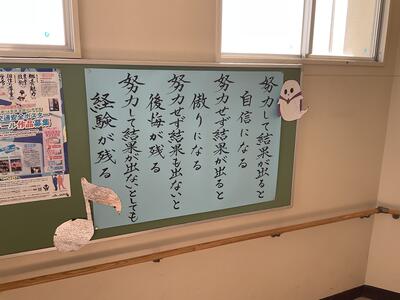 努力して結果が出ると
自信になる
努力せず結果が出ると
傲りになる
努力せず結果も出ないと
後悔が残る
努力して結果が出ないとしても
経験が残る
作品募集